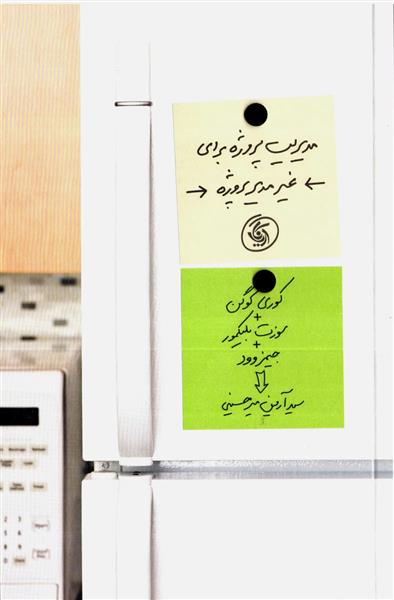 مدیریت پروژه برای
← غیر مدیر پروژه →
آریانا قلم
کوری کوگن
+
سوزت بلیکمور
+
جیمز وود
⇩
سید آرمین میرحسینی